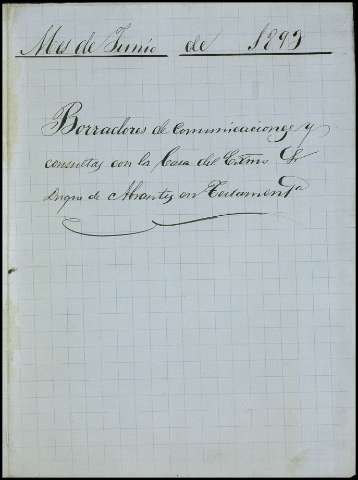 Mes de Junio de 1893
Borradores de Comunicaciones y
consultas con la Casa del Exmo. Sr
Duque de Abrantes en Testamentª